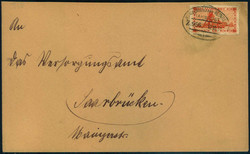 An
das Versorgungsamt
Saarbrücken.